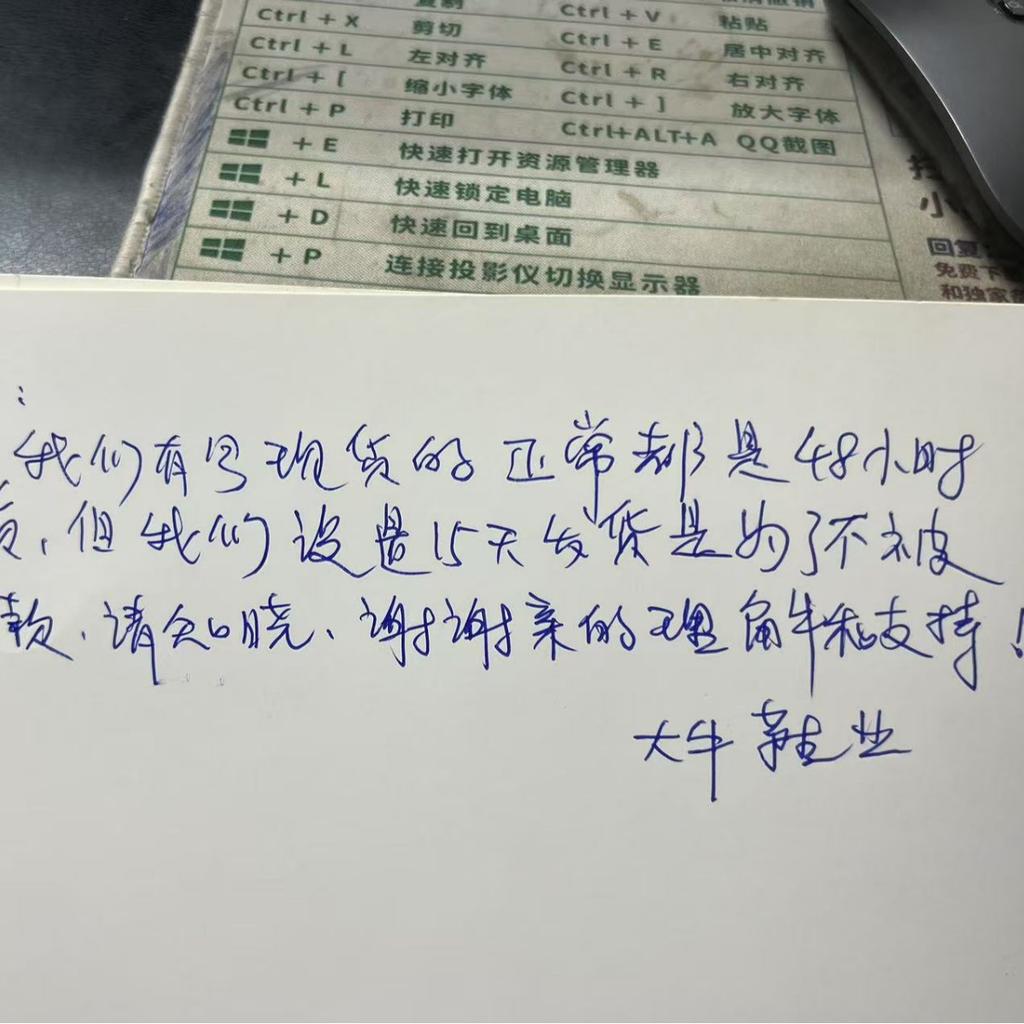 复制
Ctrl + X 剪切 Ctrl + V 粘贴
Ctrl + L 左对齐 Ctrl + E 居中对齐
Ctrl + [ 缩小字体 Ctrl + R 右对齐
Ctrl + P 打印 Ctrl + ] 放大字体
Ctrl+ALT+A QQ截图
+ E 快速打开资源管理器
+ L 快速锁定电脑
+ D 快速回到桌面
+ P 连接投影仪切换显示器
小
回复
免费下
和独家
:
我们有另现货的正常都是48小时
,但我们设置15天发货是为了不被
款、请知晓、谢谢亲的理解和支持!
大牛鞋业